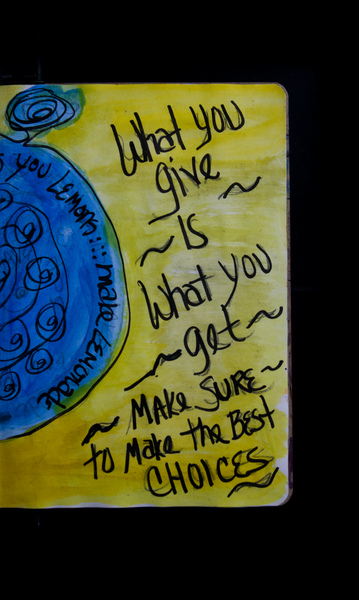 What you
give
Is
What you
get
Make Sure
to Make the Best
CHOICES
you Lemons... make LEMONADE